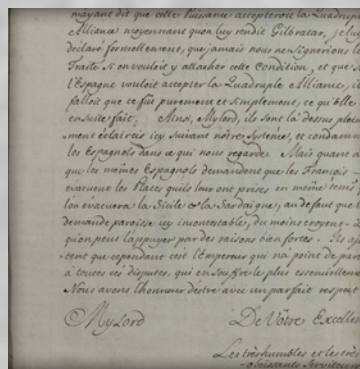 mayant dit que cette Puissance accepteroit la Quadrup
Alliance moyennant qu'on luy rendit Gilbraltar, je luy
declaré formellement, que jamais nous ne signerions le
Traité si on vouloit y attacher cette Condition, et que si
l'Espagne vouloit accepter la Quadruple Alliance, il
falloit que ce fût purement et simplement, ce qu'elle
ensuite fait. Ainsi, Mylord, ils sont là dessus plein
ment éclaircis icy suivant nôtre Systeme, et condamn
les Espagnols dans ce qui nous regarde. Mais quant a
que les mêmes Espagnols demandent que les François
evacuent les Places qu'ils leur ont prises en même tems
l'on évacuera la Sicile & la Sardaigne, au defaut que l
demande paroisse icy incontestable, du moins croyent-i
qu'on peut l'appuyer par des raisons bien fortes. Ils aj
tent que cependant c'est l'Empereur qui n'a point de par
à toutes ces disputes, qui en souffre le plus essentiellem
Nous avons l'honneur d'être avec un parfait respect
Mylord De Vôtre Excelle
Les très humbles et les très
obeissants Serviteurs